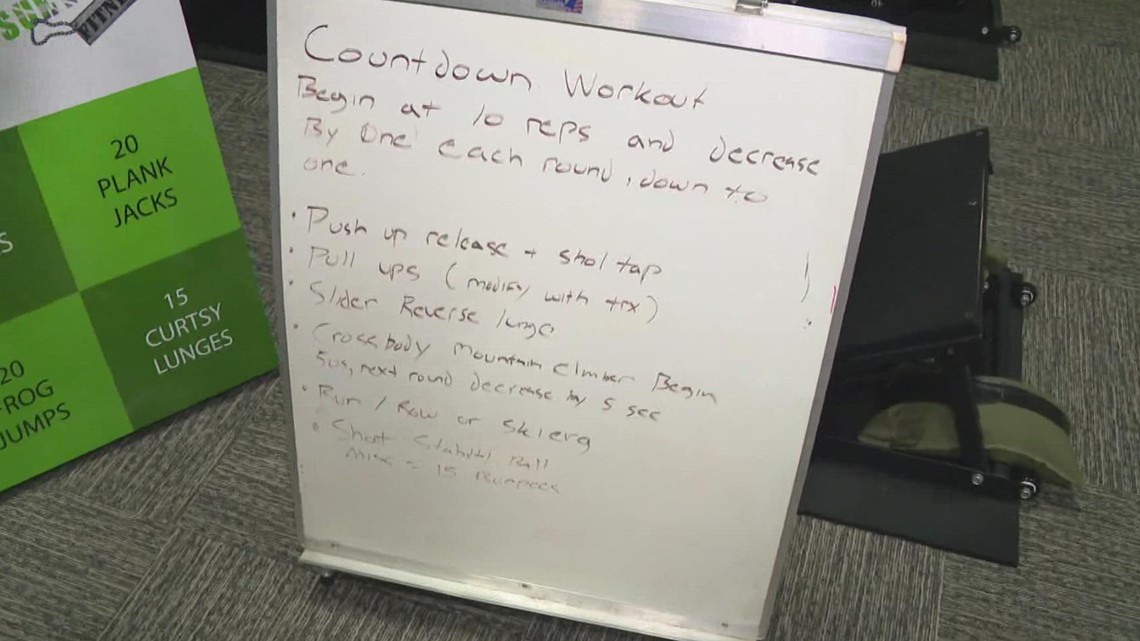 20
PLANK
JACKS
15
CURTSY
LUNGES
20
FROG
JUMPS
Countdown Workout
Begin at 10 reps and decrease
By One each round, down to
one.
• Push up release + shol tap
• Pull ups (modify with trx)
• Slider Reverse lunge
• Crossbody Mountain Climber Begin
50s, next round decrease by 5 sec
• Run / Row or Skierg
• Short Ball
Miss = 15 Burpees